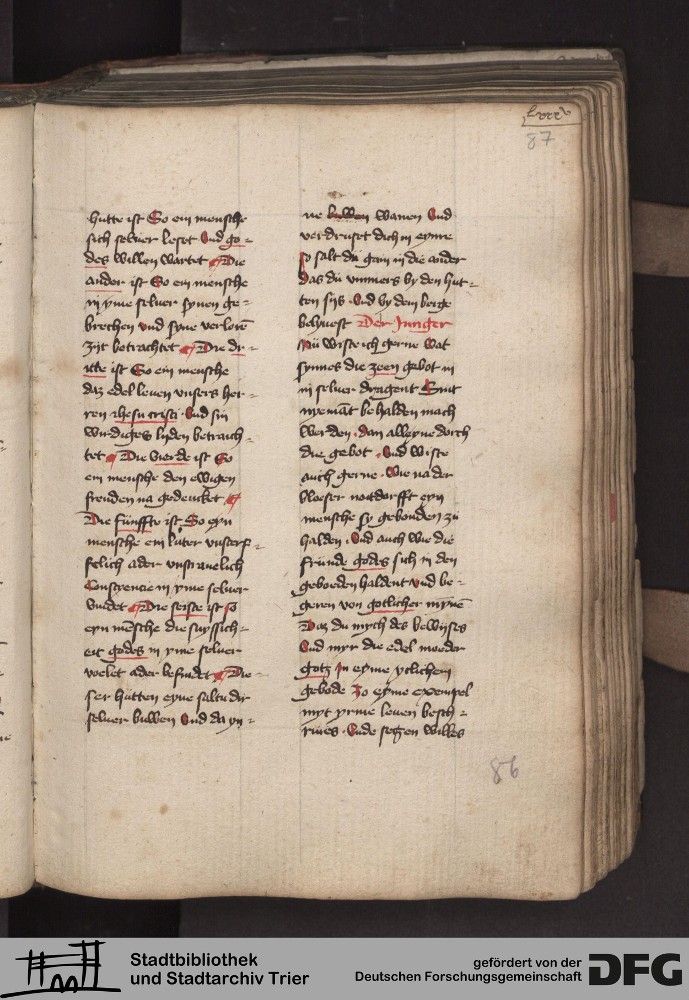 lxxxv
87
hutte ist So ein mensche
sich seluer leset Vnd go-
des willen wartet Die
ander ist So ein mensche
in yme seluer synen ge-
brechen vnd syne verlorē
zijt betrachtet Die dr-
itte ist So ein mensche
daz edel leuen vnsers her-
ren ihesu cristi Vnd sin
wirdiges lyden betrach-
tet Die vierde ist So
ein mensche den ewigen
freuden na gedencket
Die fünffte ist So eyn
mensche ein luter
felich ader
Consciencie in yme seluer
vindet Die seiste ist so
eyn mēsche die suyssich-
eit godes in yme seluer
voelet ader befindet Die-
ser hutten eyne saltu dir
seluer buwen Vnd da yn-
ne wanen Vnd
verdruset dich in eyme
so salt du gain in die ander
Das du vmmers by den hut-
ten sijs Vnd by dem berge
belyuest Der Junger
Nü wiste ich gerne wat
synnes die zeen gebot in
in seluer dragent Sint
nyemāt behalden mach
werden dan alleyne dorch
die gebot Vnd wiste
auch gerne Wie na der
bloeser noitdorfft eyn
mensche sy gebonden zu
halden Vnd auch wie die
frunde godes sich in den
geboeden haldent vnd be-
geren von gotlicher mynē
Daz du mych des bewijses
Vnd myr die edel moeder
gotz in eyme yclichem
gebode zo eyme exempel
myt yrme leuen besch-
riues Vnde segen willes
86
Stadtbibliothek
und Stadtarchiv Trier
gefördert von der
Deutschen Forschungsgemeinschaft
DFG